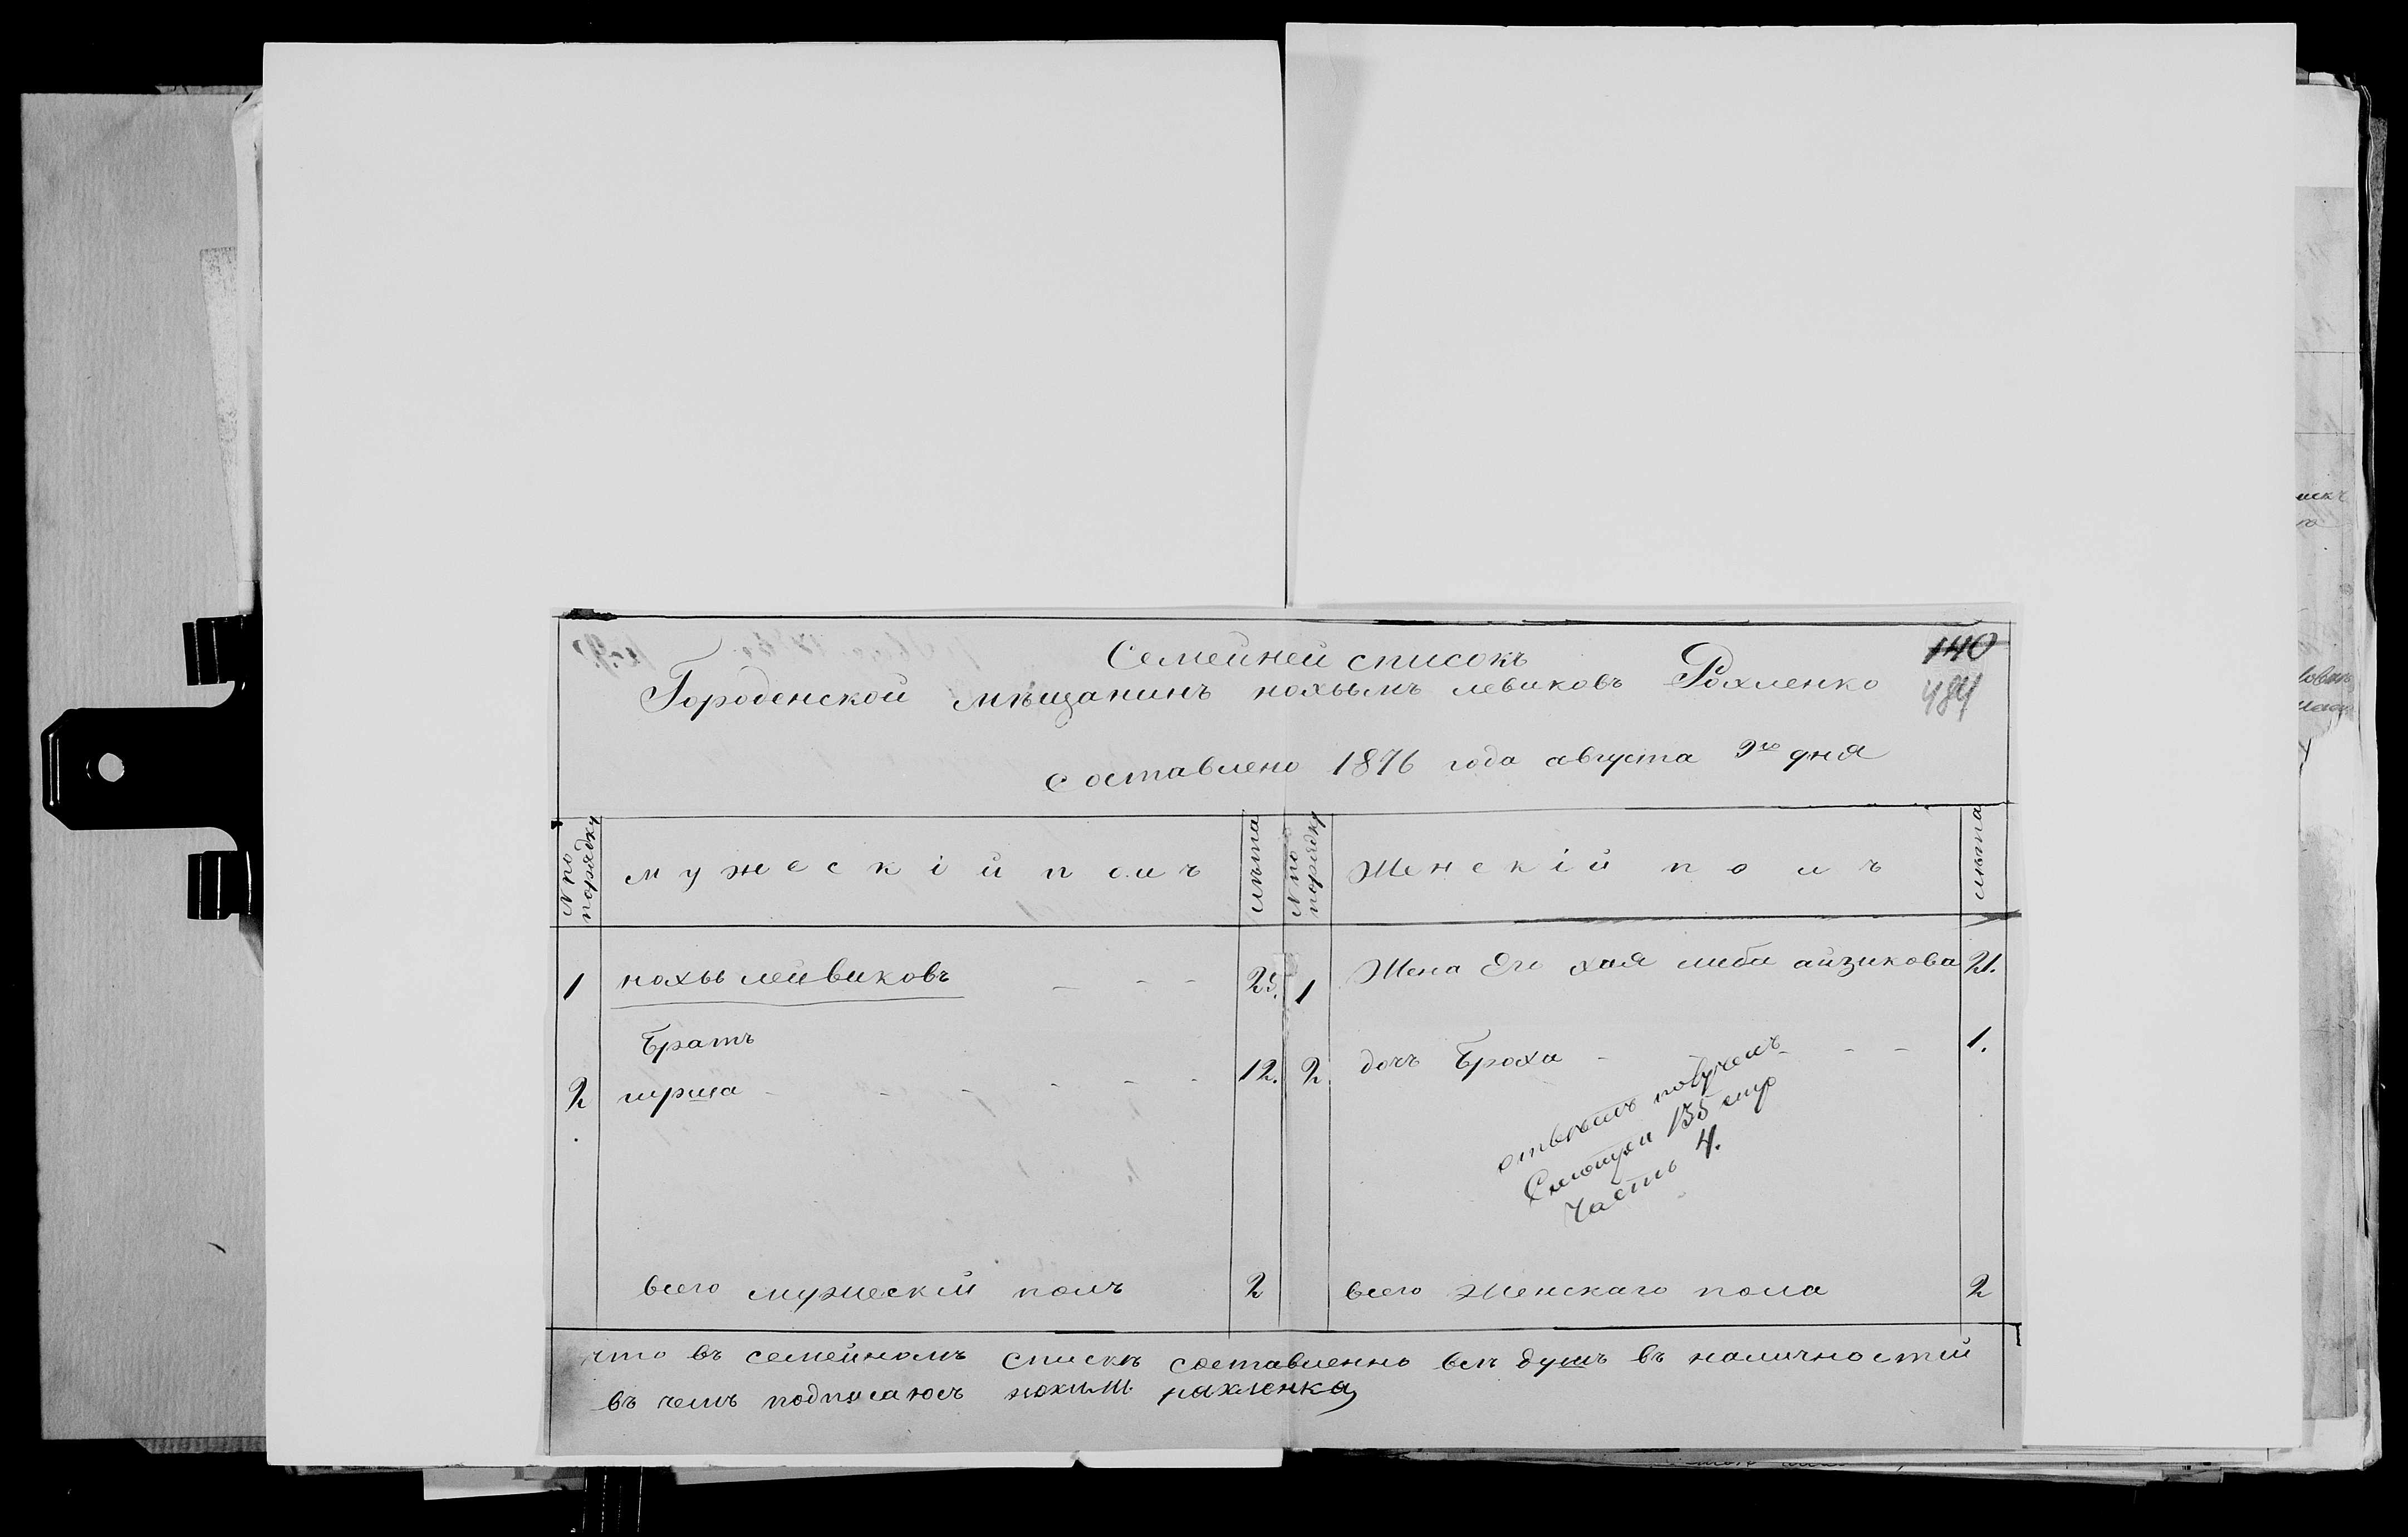 140
Семейней списокъ
Городенской мѣщанинъ нохымъ левиковъ Рохленко
484
составлено 1876 года августа 9го дня
№ по порядку
мужескій полъ
лѣта
№ по порядку
Женскій полъ
лѣта
1 нохы лейвиковъ 25. 1 Жена Его хая либа айзикова 21.
Братъ
2 гирша 12. 2 дочъ Броха 1.
Смотри 155 стр
Часть 4.
всего мужескій полъ 2 всего Женскаго пола 2
что въ семейномъ спискѣ составленно всѣ душъ въ наличностей
въ чемъ подписаюсъ нохим рахленка